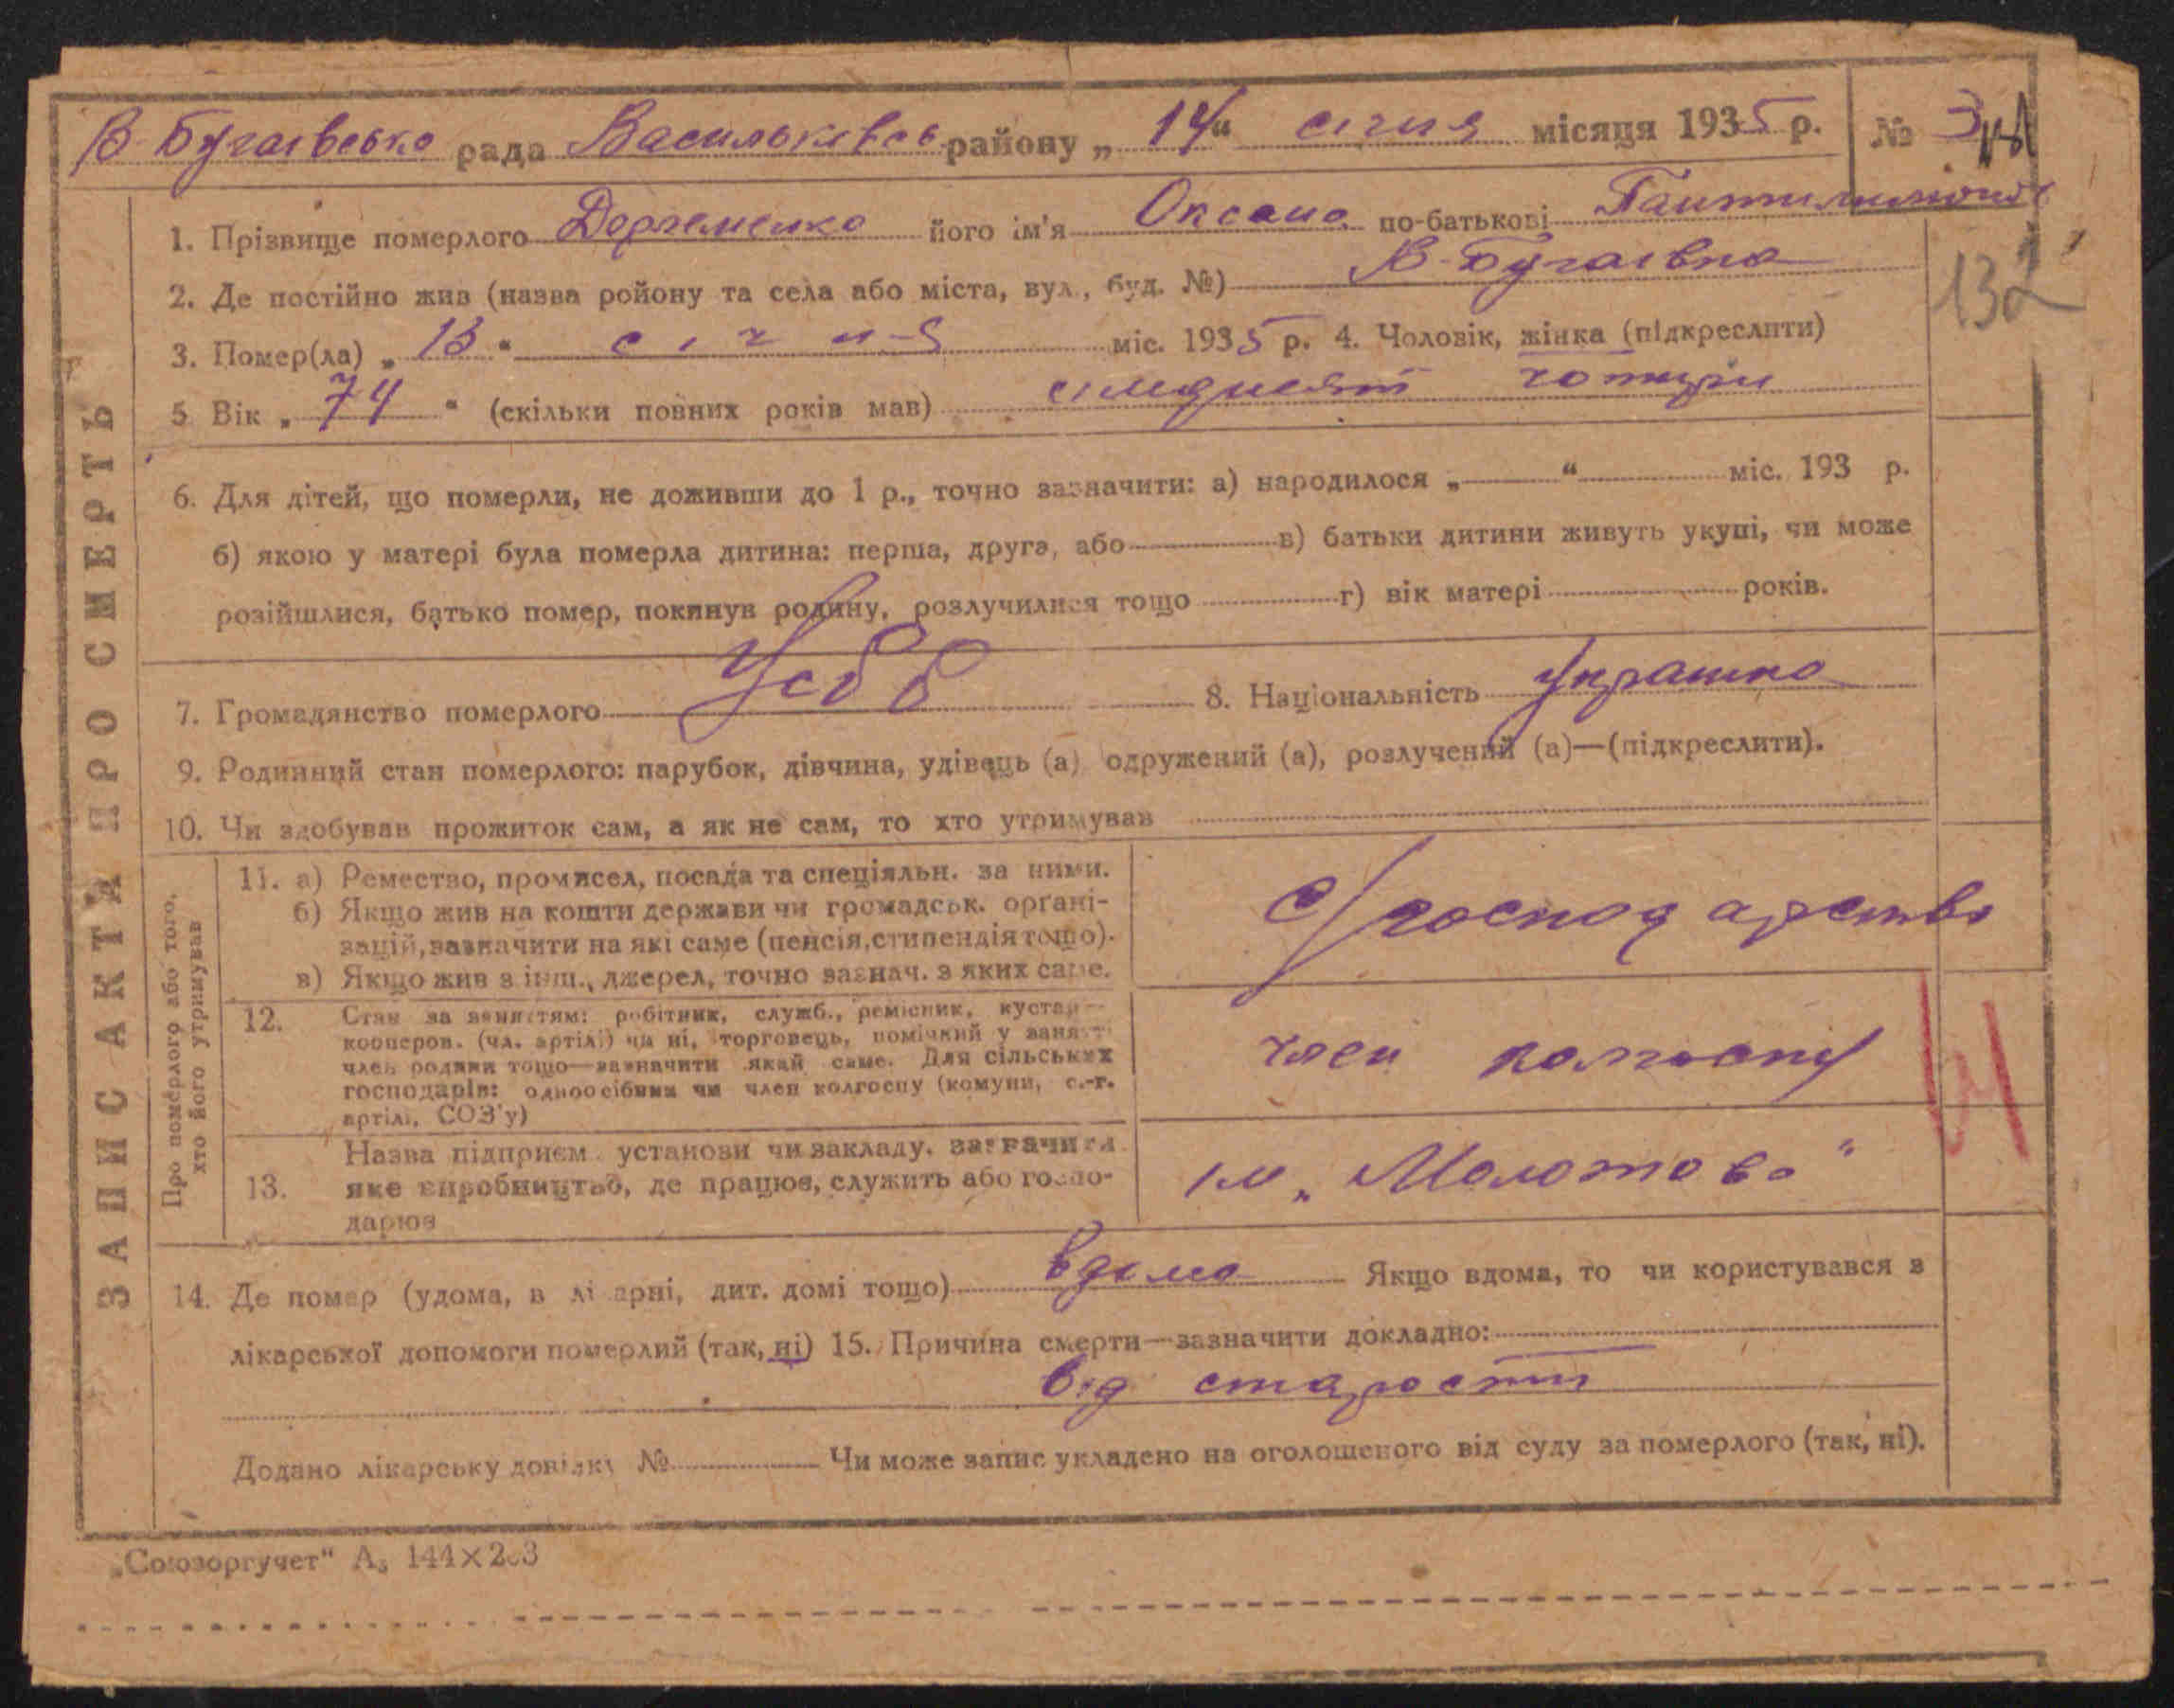 В-Бугаівсько рада Васильківсь району „14“ січня місяця 1935 р. № 3
1. Прізвище померлого його ім'я Оксана по-батькові
132
2. Де постійно жив (назва ройону та села або міста, вул., буд. №) В-Бугаівка
3. Помер(ла) „13“ січня міс. 1935 р. 4. Чоловік, жінка (підкреслити)
5 Вік „74“ (скільки повних років мав) сімдисят чотири
6. Для дітей, що померли, не доживши до 1 р., точно зазначити: а) народилося „ “ міс. 193 р.
б) якою у матері була померла дитина: перша, друга, або в) батьки дитини живуть укупі, чи може
розійшлися, батько помер, покинув родину, розлучилися тощо г) вік матері років.
7. Громадянство померлого 8. Національність Украінка
9. Родинний стан померлого: парубок, дівчина, удівець (а) одружений (а), розлучений (а)—(підкреслити).
10. Чи здобував прожиток сам, а як не сам, то хто утримував
ЗАПИС АКТА ПРО СМЕРТЬ
Про померлого або того,
хто його утримував
11. а) Ремество, промисел, посада та спеціяльн. за ними.
б) Якщо жив на кошти держави чи громадськ. орґані-
зацій, зазначити на які саме (пенсія, стипендія тощо).
в) Якщо жив з інш., джерел, точно зазнач. з яких саме.
С/господарство
12. Стан за заняттям: робітник, служб., ремісник, кустар—
кооперов. (чл. артілі) чи ні, торговець, помічний у занятті
член родини тощо—зазначити який саме. Для сільських
господарів: одноосібний чи член колгоспу (комуни, с.-г.
артілі, СОЗ'у)
член колгоспу
13. Назва підприєм. установи чи закладу, зазначити
яке виробництво, де працює, служить або госпо-
дарює
ім „Молотова“
14. Де помер (удома, в лікарні, дит. домі тощо) вдома Якщо вдома, то чи користувався в
лікарської допомоги померлий (так, ні) 15. Причина смерти—зазначити докладно:
від старости
Додано лікарську довідку № Чи може запис укладено на оголошеного від суду за померлого (так, ні).
„Союзоргучет“ А₅ 144×203